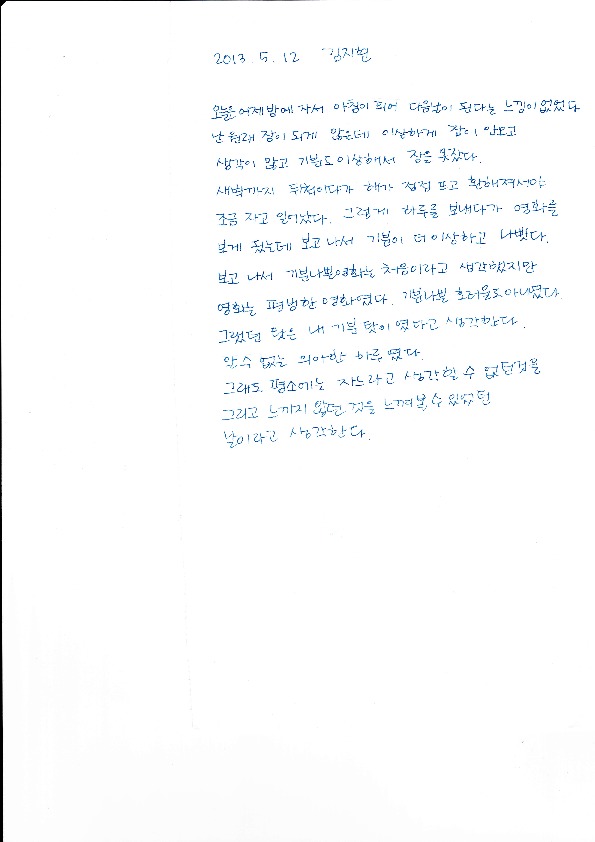 2013. 5. 12 김지현
오늘은 어제 밤에 자서 아침이 되어 다음날이 된다는 느낌이 없었다
난 원래 잠이 되게 많은데 이상하게 잠이 안오고
생각이 많고 기분도 이상해서 잠을 못잤다.
새벽까지 뒤척이다가 해가 점점 뜨고 환해져서야
조금 자고 일어났다. 그렇게 하루를 보내다가 영화를
보게 됬는데 보고 나서 기분이 더 이상하고 나빴다.
보고 나서 기분나쁜영화는 처음이라고 생각했지만
영화는 평범한 영화였다. 기분나쁠 호러물도아니였다.
그랬던 탓은 내 기분 탓이였다고 생각한다.
알 수 없는 의아한 하루 였다.
그래도 평소에는 자느라고 생각할 수 없던것을
그리고 느끼지 않던 것을 느껴볼 수 있었던
날이라고 생각한다.